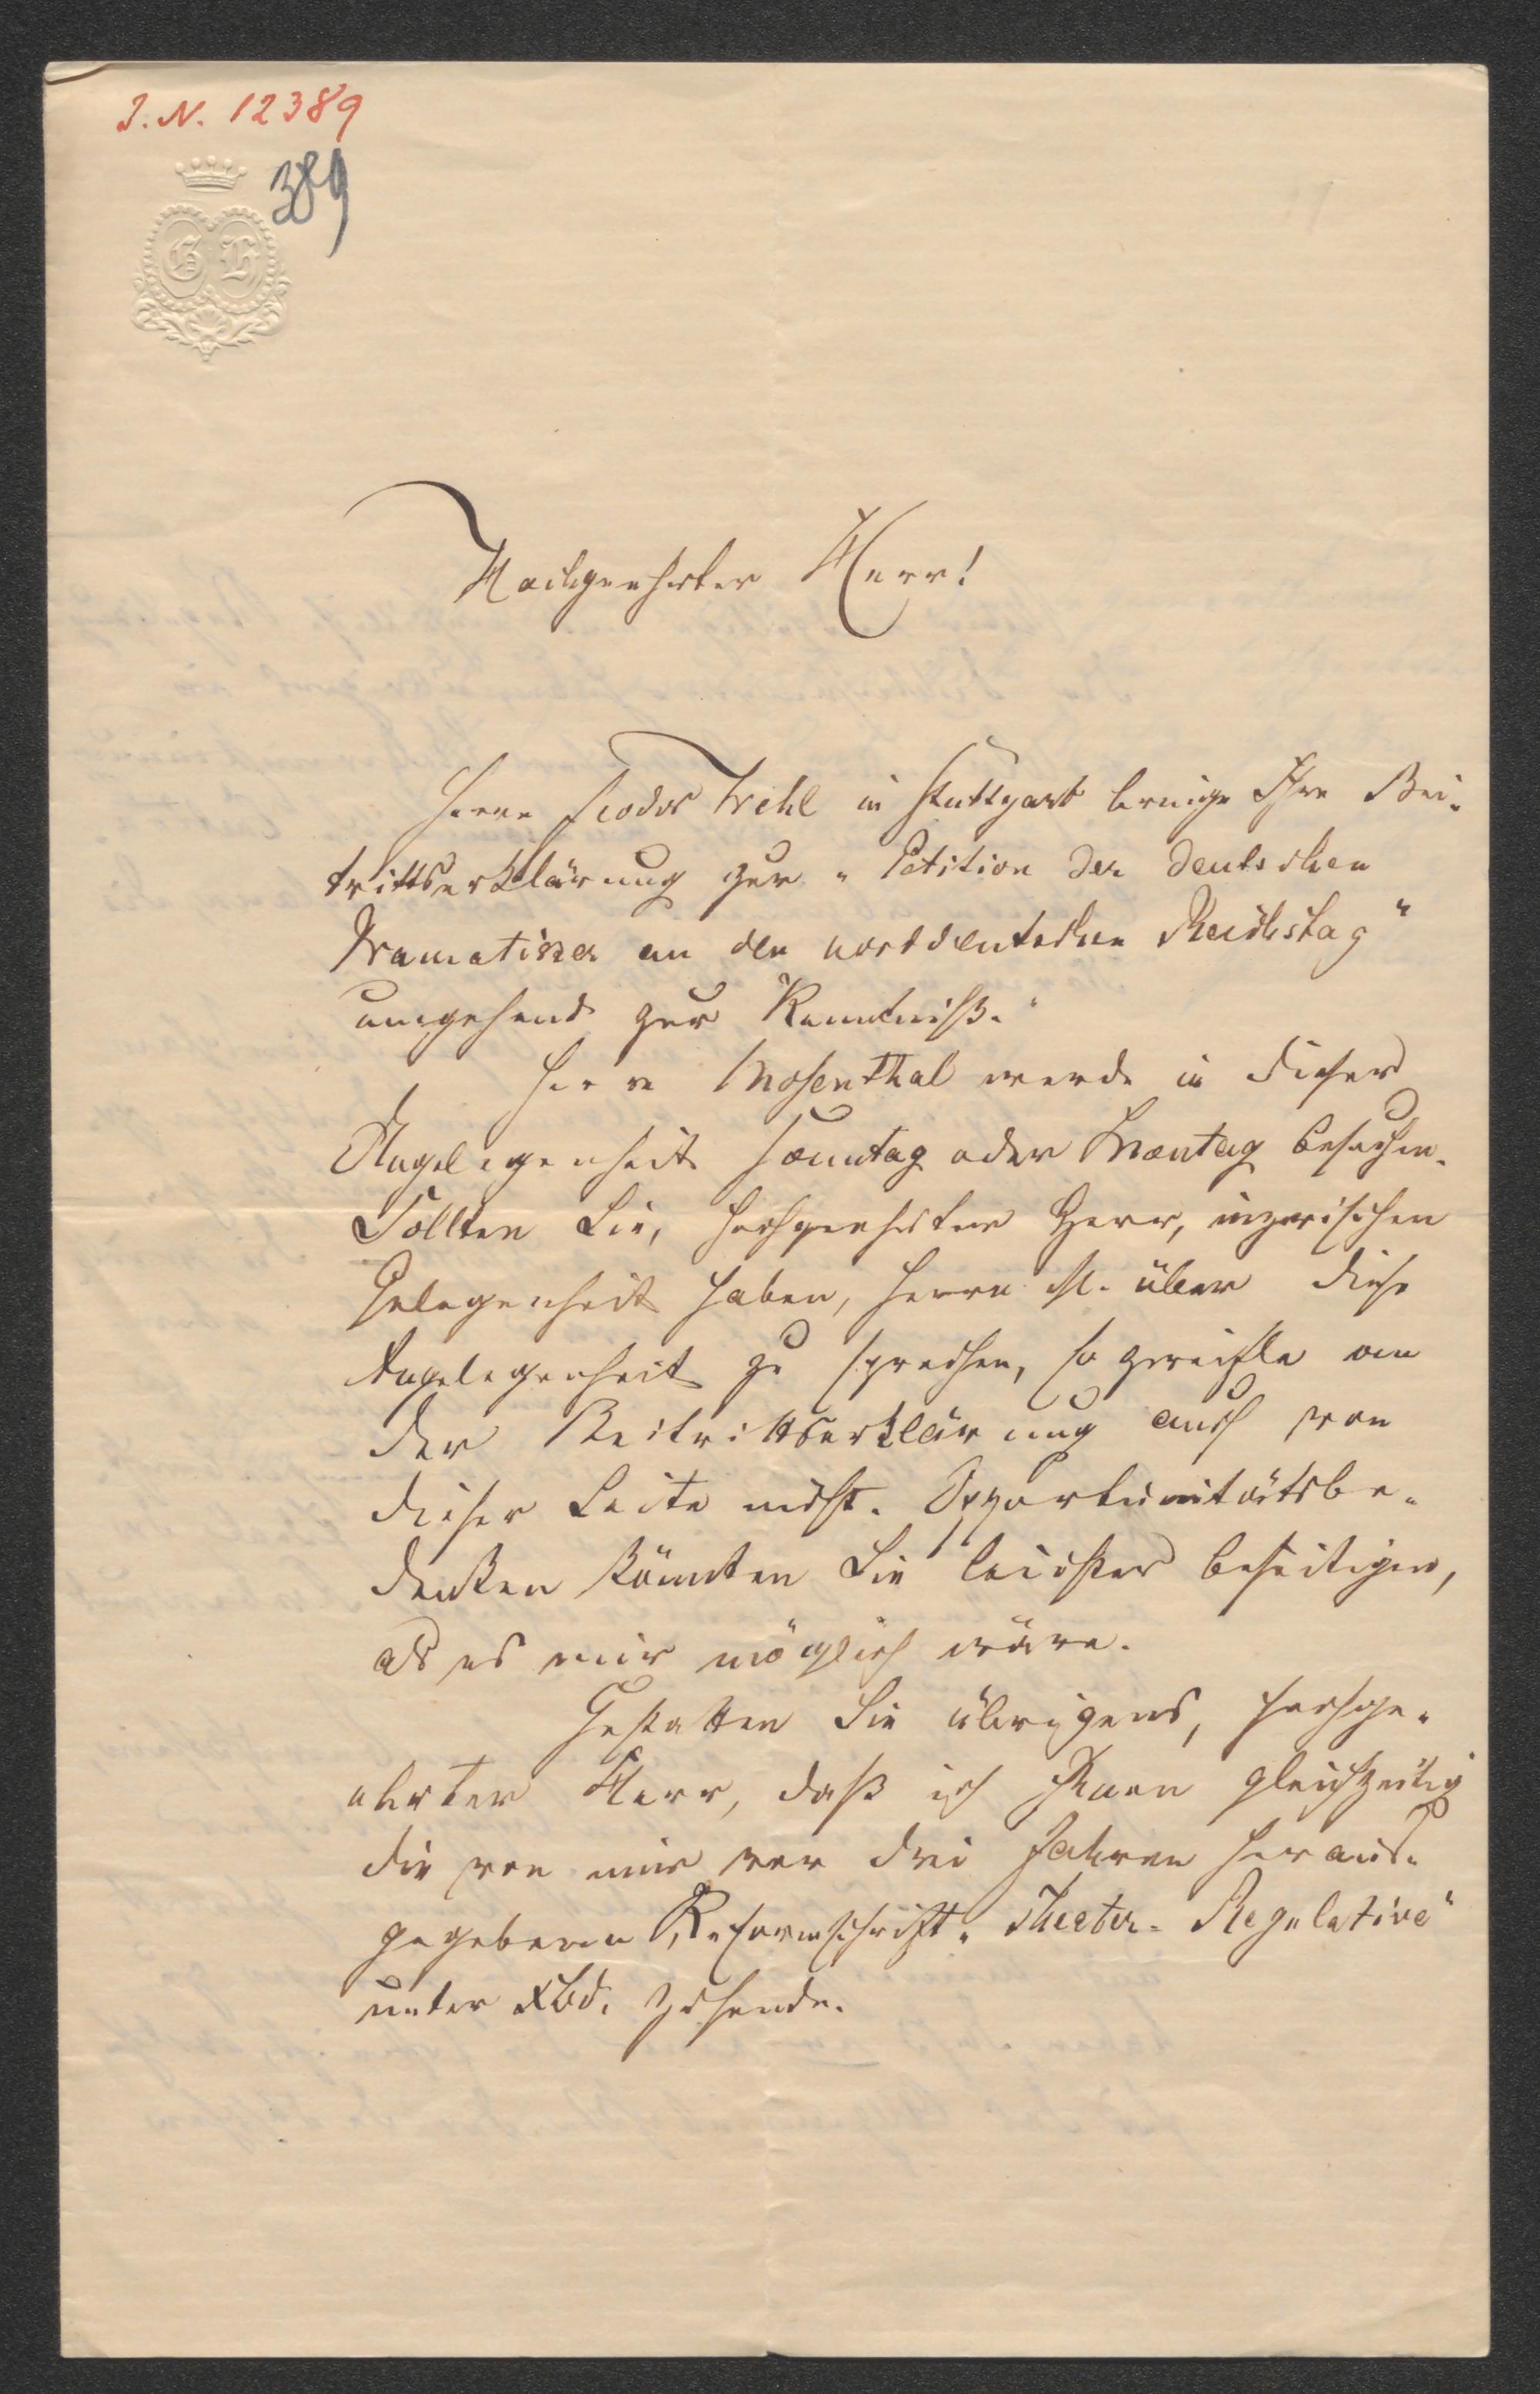 I. N. 12389
389
G H
Hochgeehrter Herr!
Herrn Feodor Wehl in Stuttgart bringe Ihre Bei-
trittserklärung zur „Petition der deutschen
Dramatiker an den norddeutschen Reichstag“
umgehend zur Kenntniß.
Herrn Mosenthal werde in dieser
Angelegenheit Sonntag oder Montag besuchen.
Sollten Sie, hochgeehrter Herr, inzwischen
Gelegenheit haben, Herrn M. über diese
Angelegenheit zu sprechen, so zweifle an
der Beitrittserklärung auch von
dieser Seite nicht. Opportunitätsbe-
denken könnten Sie leichter beseitigen,
als es mir möglich wäre.
Gestatten Sie übrigens, hochge-
ehrter Herr, daß ich Ihnen gleichzeitig
die von mir vor drei Jahren heraus-
gegebene Reformschrift „Theater-Regulative“
unter Xbd. zusende.